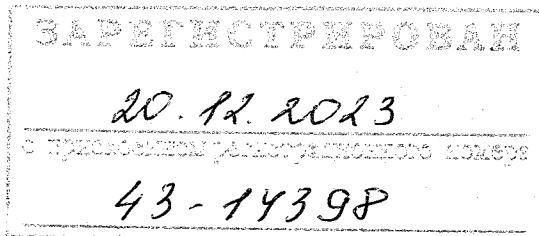 ЗАРЕГИСТРИРОВАН
20.12.2023
с присвоением регистрационного номера
43-14398